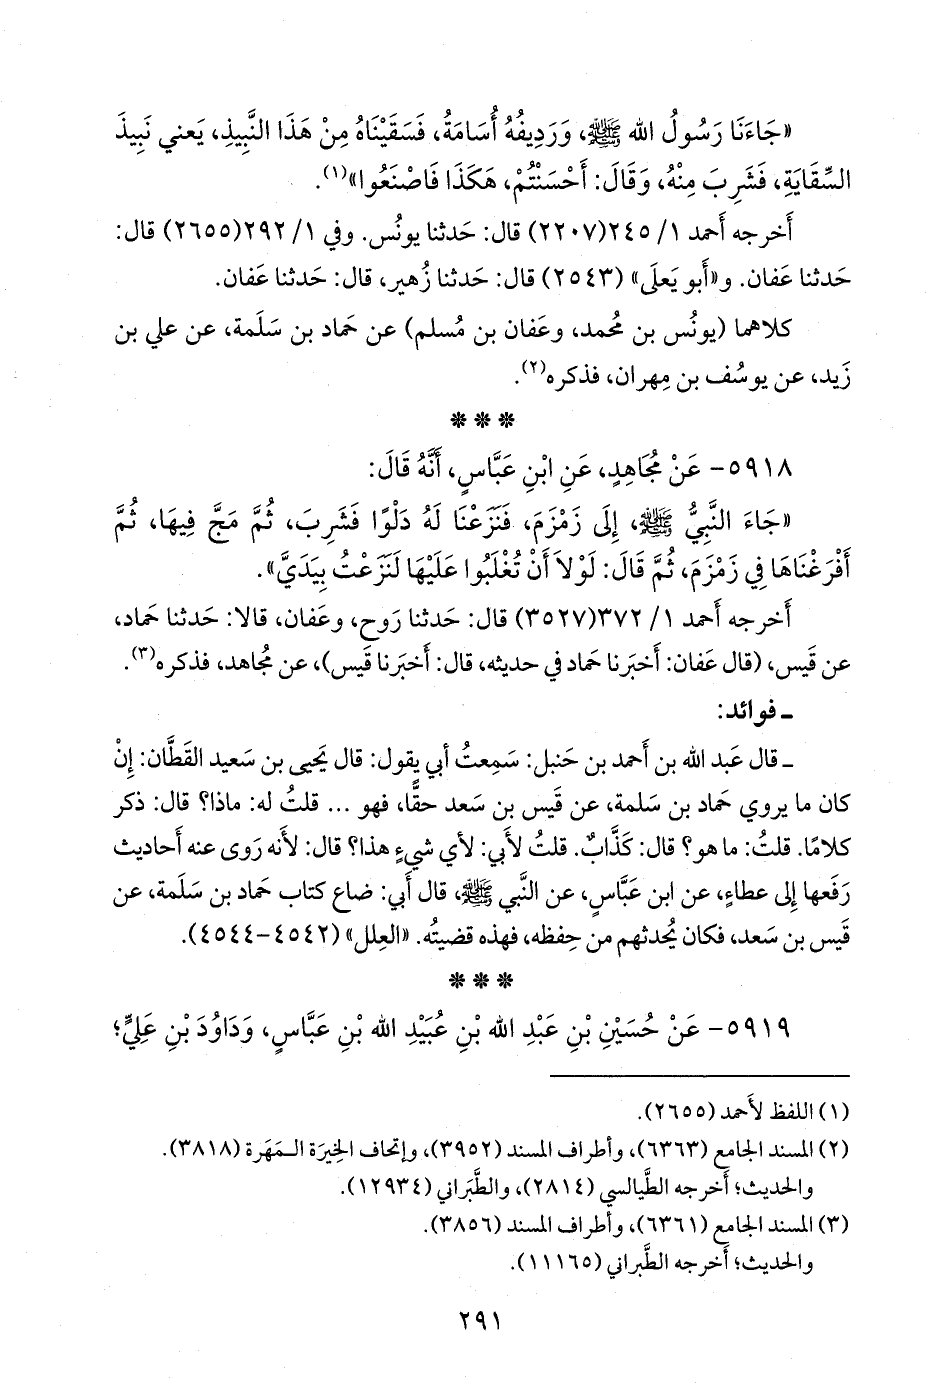 «جَاءَنَا رَسُولُ الله ﷺ، وَرَدِيفُهُ أُسَامَةُ، فَسَقَيْنَاهُ مِنْ هَذَا النَّبِيذِ، يَعني نَبِيذَ
السِّقَايَةِ، فَشَرِبَ مِنْهُ، وَقَالَ: أَحْسَنْتُمْ، هَكَذَا فَاصْنَعُوا»(١).
أَخرجه أَحمد ١/ ٢٤٥(٢٢٠٧) قال: حَدثنا يونُس. وفي ١/ ٢٩٢(٢٦٥٥) قال:
حَدثنا عَفان. و«أَبو يَعلَى» (٢٥٤٣) قال: حَدثنا زُهير، قال: حَدثنا عَفان.
كلاهما (يونُس بن مُحمد، وعَفان بن مُسلم) عن حَماد بن سَلَمة، عن علي بن
زَيد، عن يوسُف بن مِهران، فذكره(٢).
***
٥٩١٨- عَنْ مُجَاهِدٍ، عَنِ ابْنِ عَبَّاسٍ، أَنَّهُ قَالَ:
«جَاءَ النَّبِيُّ ﷺ، إِلَى زَمْزَمَ، فَنَزَعْنَا لَهُ دَلْوًا فَشَرِبَ، ثُمَّ مَجَّ فِيهَا، ثُمَّ
أَفْرَغْنَاهَا فِي زَمْزَمَ، ثُمَّ قَالَ: لَوْلاَ أَنْ تُغْلَبُوا عَلَيْهَا لَنَزَعْتُ بِيَدَيَّ».
أَخرجه أَحمد ١/ ٣٧٢(٣٥٢٧) قال: حَدثنا رَوح، وعَفان، قالا: حَدثنا حَماد،
عن قَيس، (قال عَفان: أَخبَرنا حَماد في حديثه، قال: أَخبَرنا قَيس)، عن مُجاهد، فذكره(٣).
ـ فوائد:
ـ قال عَبد الله بن أَحمد بن حَنبل: سَمِعتُ أَبي يقول: قال يَحيى بن سَعيد القَطَّان: إِنْ
كان ما يروي حَماد بن سَلمة، عن قَيس بن سَعد حقًّا، فهو ... قلتُ له: ماذا؟ قال: ذكر
كلامًا. قلتُ: ما هو؟ قال: كَذَّابٌ. قلتُ لأَبي: لأي شيءٍ هذا؟ قال: لأَنه رَوى عنه أَحاديث
رَفَعها إِلى عطاءٍ، عن ابن عَبَّاسٍ، عن النَّبي ﷺ، قال أَبي: ضاع كتاب حَماد بن سَلَمة، عن
قَيس بن سَعد، فكان يُحدثهم من حِفظه، فهذه قضيتُه. «العِلل» (٤٥٤٢-٤٥٤٤).
***
٥٩١٩- عَنْ حُسَيْنِ بْنِ عَبْدِ الله بْنِ عُبَيْدِ الله بْنِ عَبَّاسٍ، وَدَاوُدَ بْنِ عَلِيٍّ؛
(١) اللفظ لأَحمد (٢٦٥٥).
(٢) المسند الجامع (٦٣٦٣)، وأطراف المسند (٣٩٥٢)، وإتحاف الخِيرَة الـمَهَرة (٣٨١٨).
والحديث؛ أخرجه الطَّيالسي (٢٨١٤)، والطَّبَراني (١٢٩٣٤).
(٣) المسند الجامع (٦٣٦١)، وأطراف المسند (٣٨٥٦).
والحديث؛ أخرجه الطَّبراني (١١١٦٥).
٢٩١